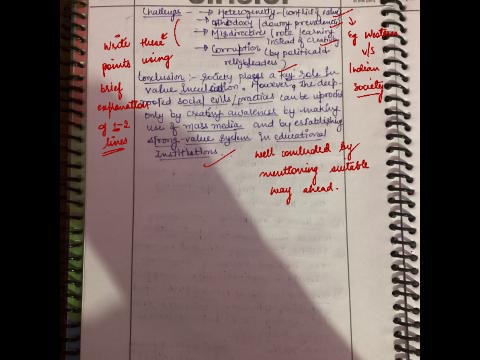 Challenges → Heterogeneity (conflict of value)
→ Orthodoxy (dowry prevalence)
→ Misdirectives (rote learning
instead of creativity
→ Corruption (by political &
religleaders)
Conclusion :- Society plays a key role in
value inculcation. However, the deep
rooted social evils/practices can be uprooted
only by creating awareness by making
use of mass media and by establishing
strong value system in educational
Institutions.
Write these
points using
brief
explanation
of 1-2
lines
eg Western
v/s
Indian
Society
well concluded by
mentioning suitable
way ahead.